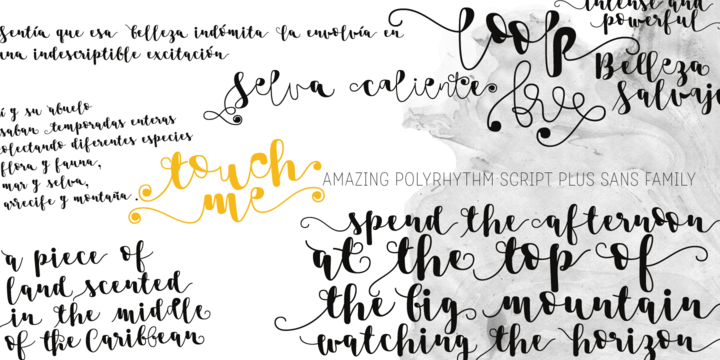 Sentía que esa belleza indómita la envolvía en
una indescriptible excitación
loop
intense and
powerful
Belleza
Salvaje
Selva caliente
love
y su abuelo
temporadas enteras
colectando diferentes especies
flora y fauna,
mar y selva,
arrecife y montaña.
touch
me
AMAZING POLYRHYTHM SCRIPT PLUS SANS FAMILY
a piece of
land scented
in the middle
of the Caribbean
spend the afternoon
at the top of
the big mountain
watching the horizon